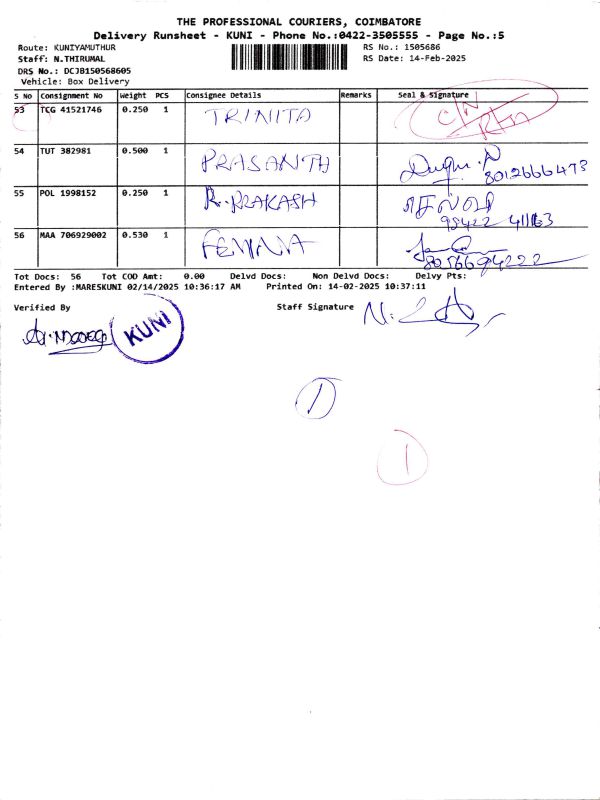 THE PROFESSIONAL COURIERS, COIMBATORE
Delivery Runsheet - KUNI - Phone No.:0422-3505555 - Page No.:5
Route: KUNIYAMUTHUR RS No.: 1505686
Staff: N.THIRUMAL RS Date: 14-Feb-2025
DRS No.: DCJB150568605
Vehicle: Box Delivery
S No Consignment No Weight PCS Consignee Details Remarks Seal & Signature
53 TCG 41521746 0.250 1 TRINITA
54 TUT 382981 0.500 1 PRASANTH
8012666473
55 POL 1998152 0.250 1 R.PRAKASH
56 MAA 706929002 0.530 1 FEMINA
8056694222
Tot Docs: 56 Tot COD Amt: 0.00 Delvd Docs: Non Delvd Docs: Delvy Pts:
Entered By :MARESKUNI 02/14/2025 10:36:17 AM Printed On: 14-02-2025 10:37:11
Verified By Staff Signature
KUNI
1
1